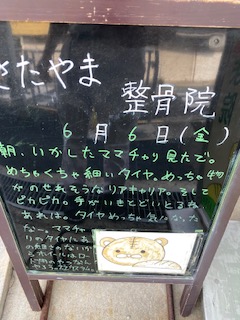 きたやま
整骨院
6月6日(金)
朝、いかしたママチャリ見たで。
めちゃくちゃ細いタイヤ。めっちゃ物
かのせれそうなリアキャリア。そして
ピカピカ。手がいきとどいとるなぁ
あれは。タイヤめっちゃ気になった
なー。ママチャ
リのタイヤにあ
の細さのないか
らホイールはロー